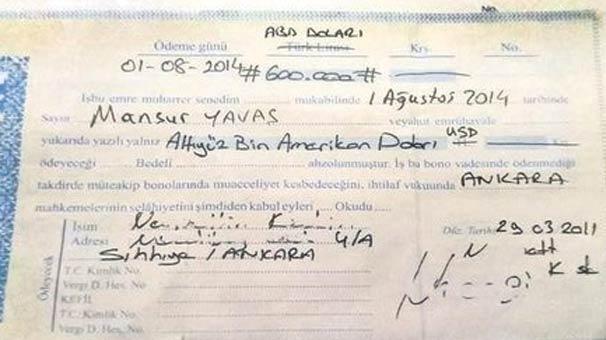 No.
ABD DOLARI
Ödeme günü Türk Lirası Krş. No.
01-08-2014 #600.000#
İşbu emre muharrer senedim ... mukabilinde 1 Ağustos 2014 tarihinde
Sayın Mansur YAVAŞ veyahut emrühavale
yukarıda yazılı yalnız Altıyüz Bin Amerikan Doları USD # Krş.
ödeyeceğim. Bedeli ahzolunmuştur. İş bu bono vadesinde ödenmediği
takdirde müteakip bonolarında muacceliyet kesbedeceğini, ihtilaf vukuunda ANKARA
mahkemelerinin selâhiyetini şimdiden kabul eyleri. Okudu
İsim
Düz. Tarihi 29 03 2011
Adresi 4/A
Sıhhiye / ANKARA
Ödeyecek
T.C. Kimlik No.
Vergi D. Hes. No
KEFİL
T.C. Kimlik No.
Vergi D. Hes. No.